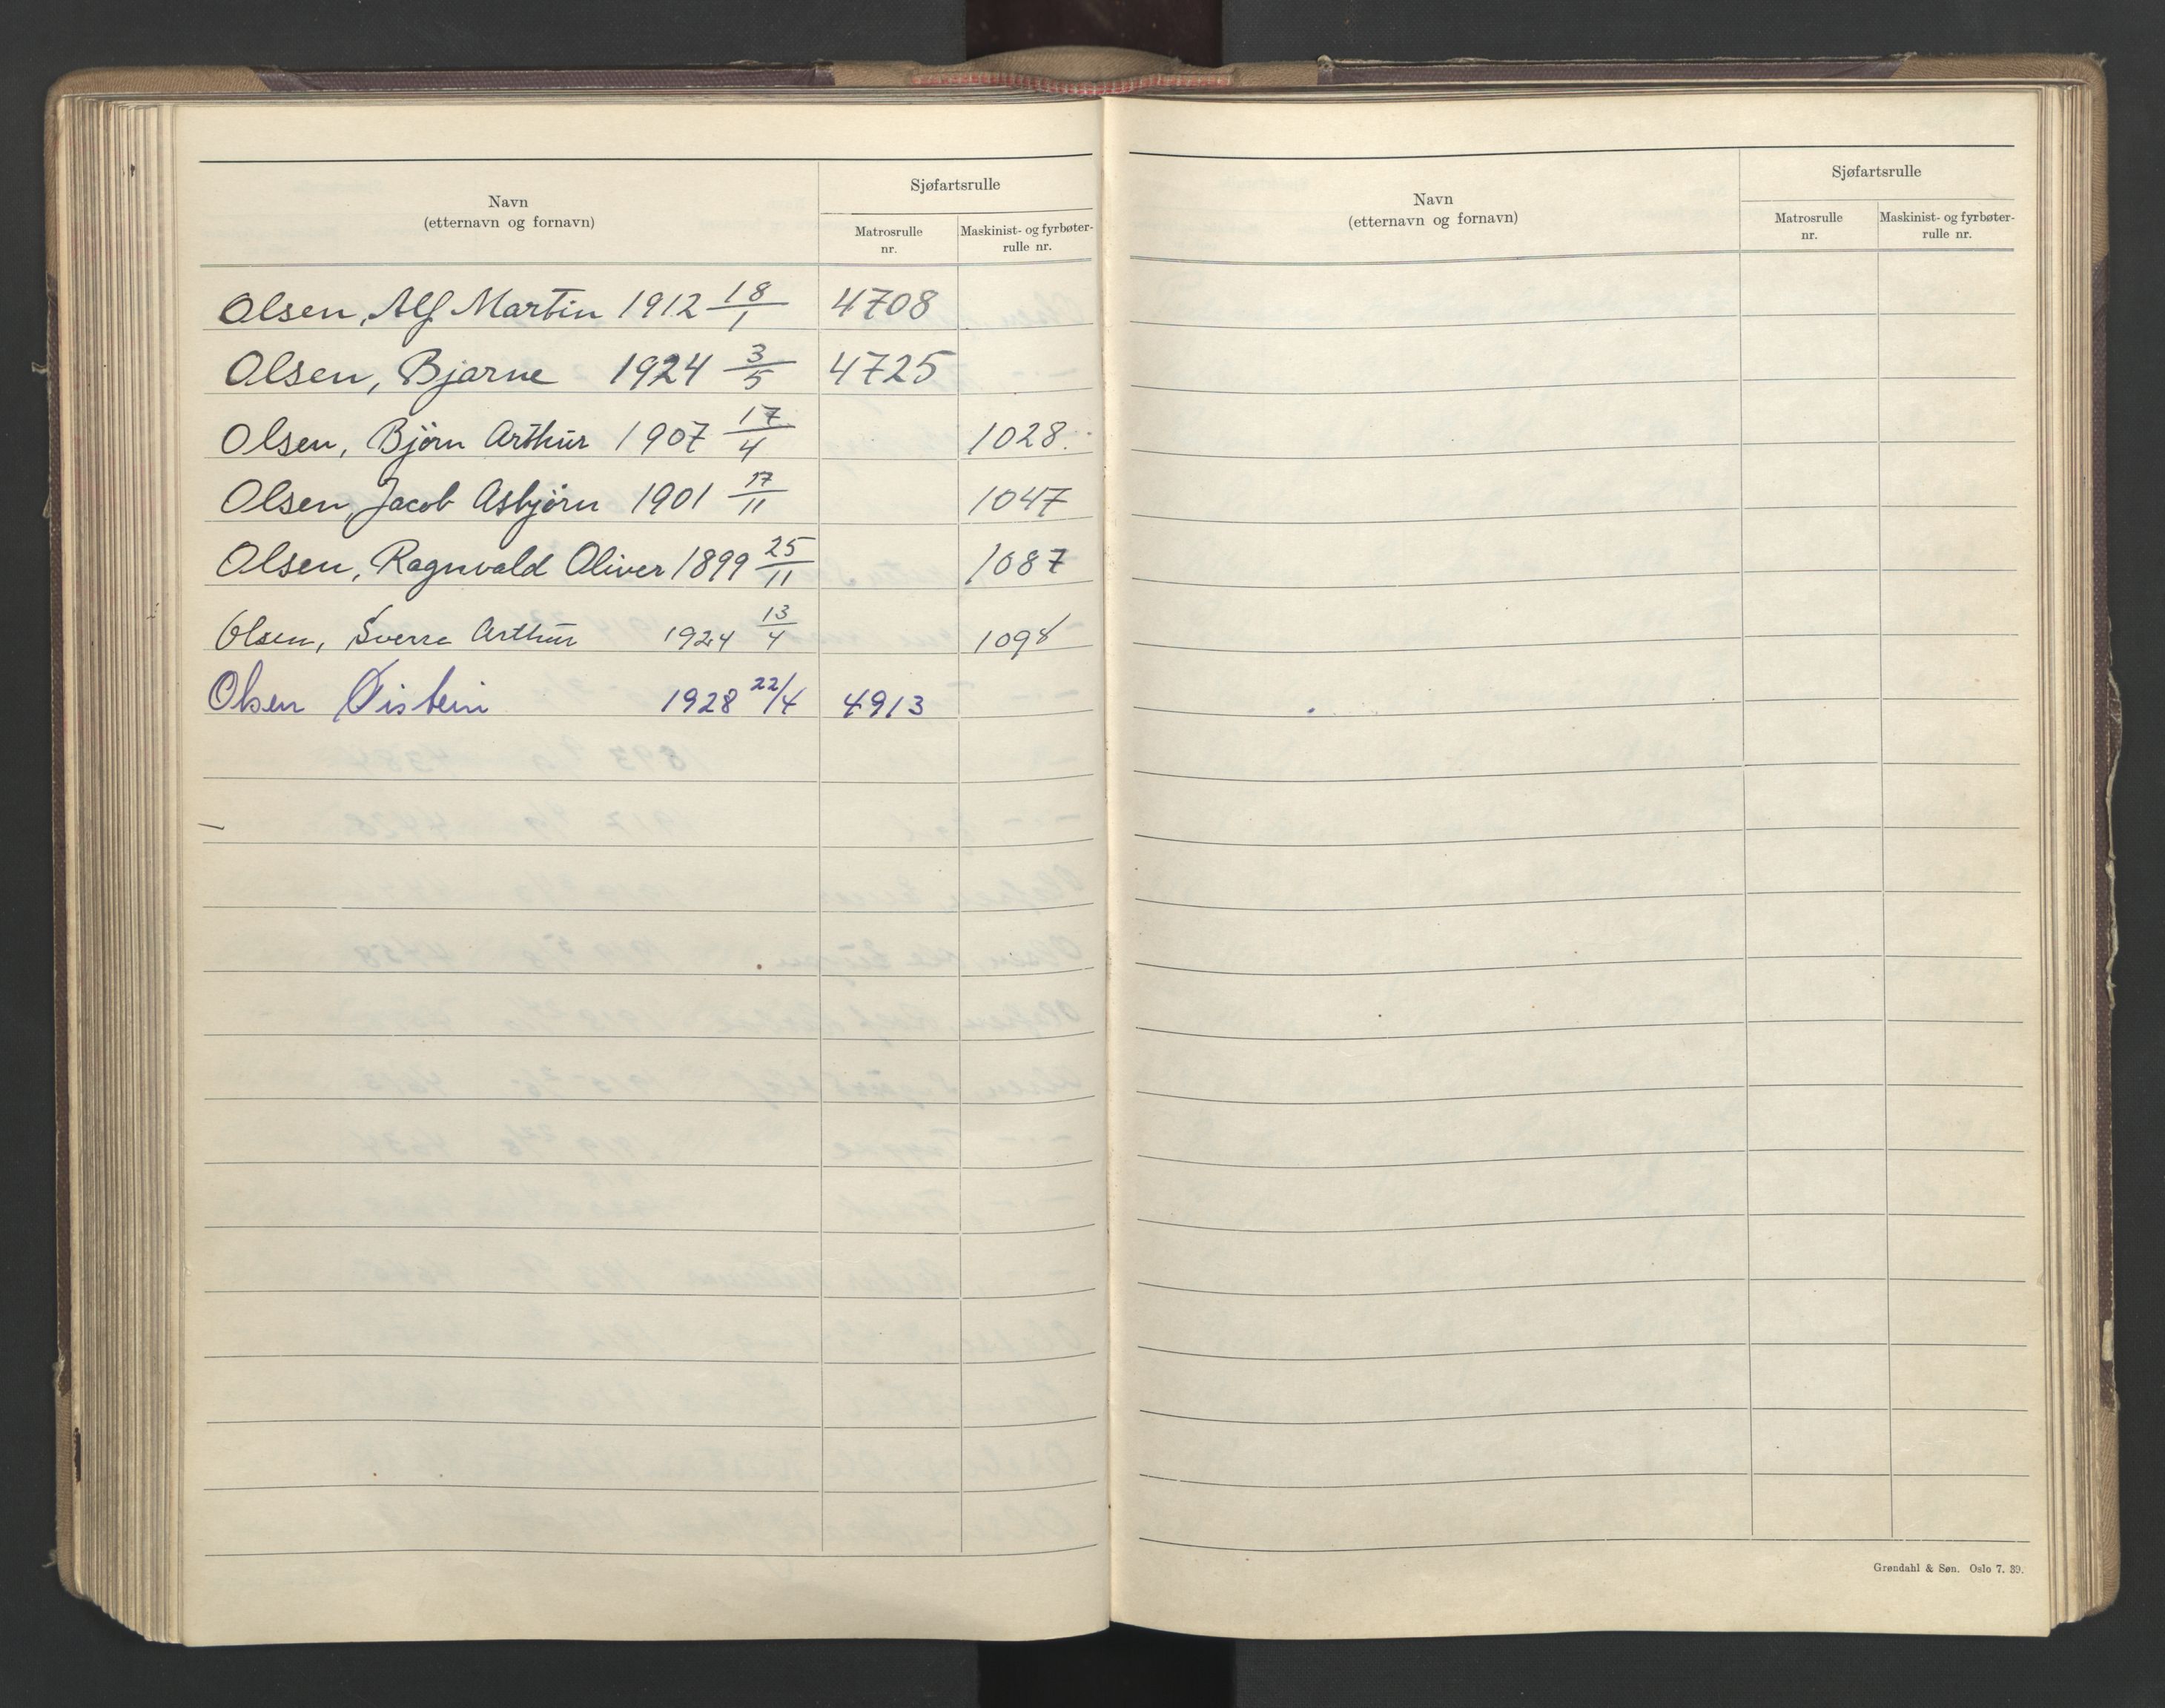 Navn
(etternavn og fornavn)
Sjøfartsrulle
Matrosrulle
nr.
Maskinist- og fyrbøter-
rulle nr.
Olsen, Alf Martin 1912 18/1 4708
Olsen, Bjarne 1924 3/5 4725
Olsen, Bjørn Arthur 1907 17/4 1028.
Olsen, Jacob Asbjørn 1901 17/11 1047
Olsen, Ragnvald Oliver 1899 25/11 1087
Olsen, Sverre Arthur 1924 13/4 1098
Olsen Øistein 1928 22/4 4913
Navn
(etternavn og fornavn)
Sjøfartsrulle
Matrosrulle
nr.
Maskinist- og fyrbøter-
rulle nr.
Grøndahl & Søn. Oslo 7. 39.